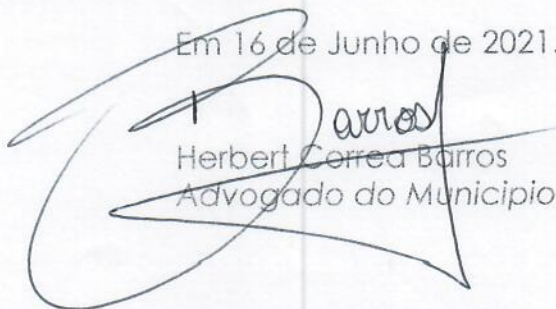 Em 16 de Junho de 2021.
Barros
Herbert Correa Barros
Advogado do Municipio